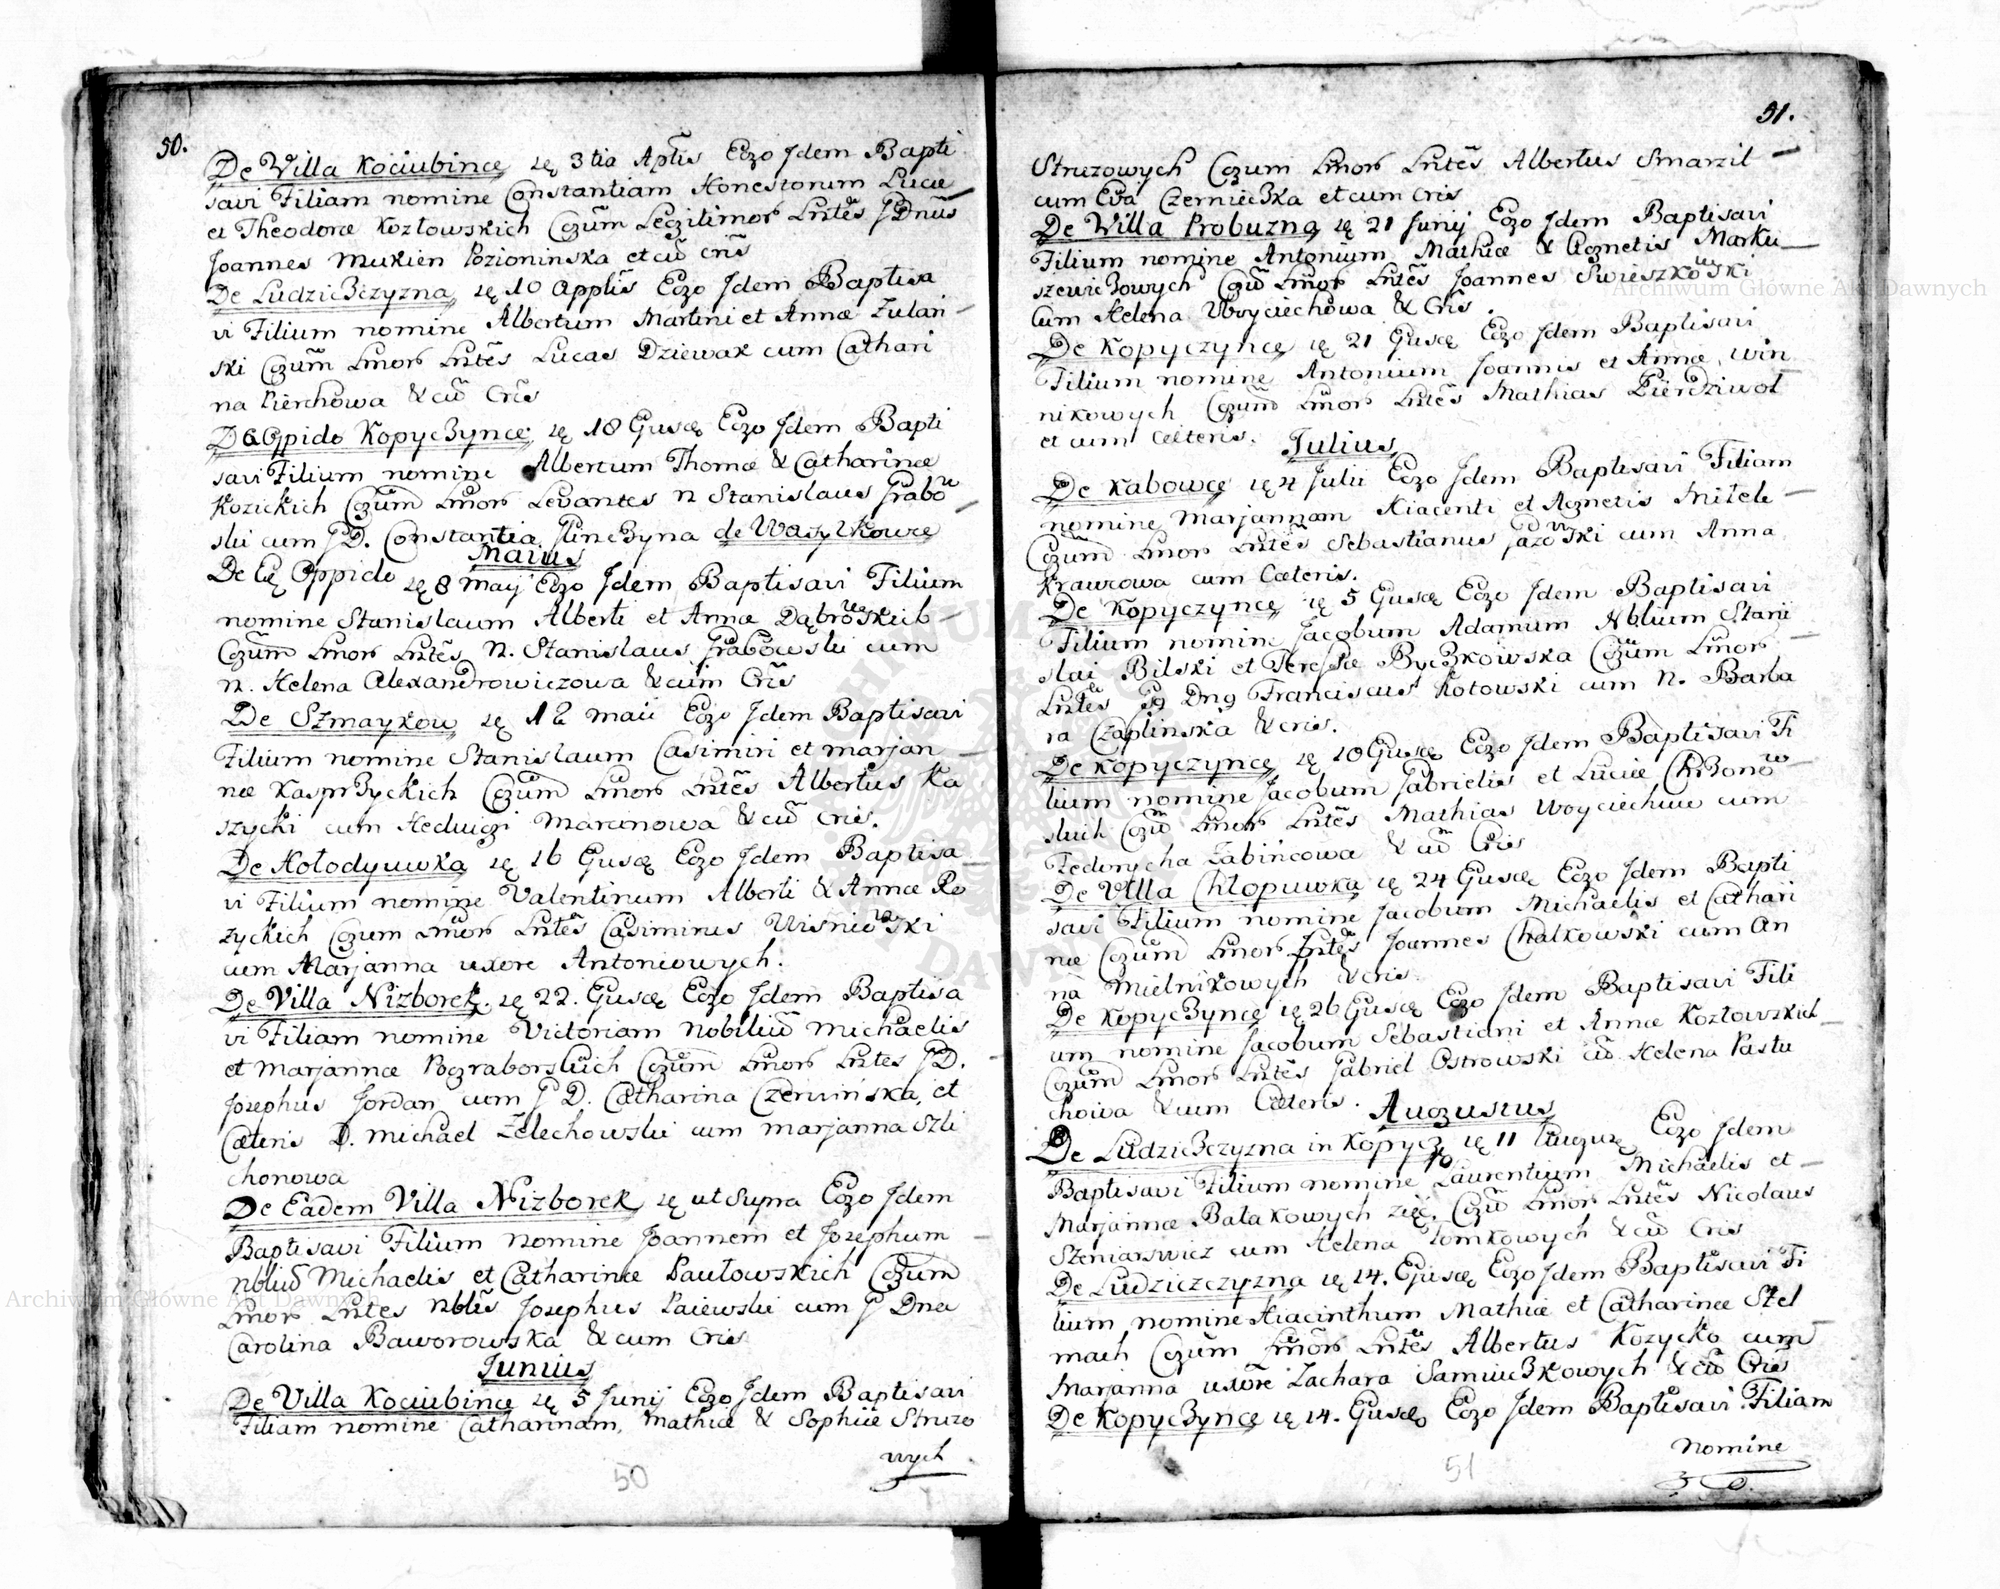 50.
De Villa Kociubince ię 3tia Aplis Ego Jdem Bapti
savi Filiam nomine Constantiam Honestorum Lucæ
et Theodoræ Kozłowskich Cgum Legitimor Lntes JDnus
Joannes Mukien Pozioninska et cu cris
De Ludziczczyzna ię 10 Applis Ego Jdem Baptisa
vi Filium nomine Albertum Martini et Annæ Zulan
ski Cgum Lmor Lntes Lucas Dziewak cum Cathari
na Pierchowa & cu Cris
De Oppido Kopyczynce ię 18 Gusce Ego Jdem Bapti
savi Filium nomine Albertum Thomæ & Catharinæ
Kozickich Cgum Lmor Levantes n Stanislaus Grabo
ski cum JD. Constantia Glinczyna de Wasylkowce
Maius
De Eę Oppido ię 8 May Ego Jdem Baptisavi Filium
nomine Stanislaum Alberti et Annæ Dąbrowskich
Cgum Lmor Lntes N. Stanislaus Grabowski cum
N. Helena Alexandrowiczowa & cum Cris
De Szmaykow ię 12 Maii Ego Jdem Baptisavi
Filium nomine Stanislaum Casimiri et Marjan
næ Kasprzyckich Cgum Lmor Lntes Albertus Ka
szycki cum Hedvigi Marcinowa & cu cris.
De Hołodyuwka ię 16 Gusce Ego Jdem Baptisa
vi Filium nomine Valentinum Alberti & Annæ Ro
życkich Cgum Lmor Lntes Casimirus Wisniowski
cum Marjanna uxore Antoniowych.
De Villa Nizborek ię 22. Gusce Ego Jdem Baptisa
vi Filiam nomine Victoriam Nobiliu Michaelis
et Marjannæ Pograborskich Cgum Lmor Lntes JD.
Josephus Jordan cum J D. Catharina Czerwińska, et
Cæteris D. Michael Zelechowski cum Marjanna Szli
chonowa
De Eadem Villa Nizborek ię ut supra Ego Jdem
Baptisavi Filium nomine Joannem et Josephum
nbliu Michaelis et Catharinæ Pawłowskich Cgum
Lmor Lntes nblis Josephus Paiewski cum J Dna
Carolina Baworowska & cum Cris
Junius
De Villa Kociubince ię 5 Junij Ego Jdem Baptisavi
Filiam nomine Catharinam, Mathiæ & Sophiæ Struzo
wych
50
51.
Struzowych Cgum Lmor Lntes Albertus Smarzil
cum Eva Czerniecka et cum Cris
De Villa Probuzna ię 21 Junij Ego Jdem Baptisavi
Filium nomine Antonium Mathiæ & Agnetis Marku
szewiczowych Cgu Lmor Lntes Joannes Swieszkowski
Cum Helena Woyciechowa & Cris.
De Kopyczynce ię 21 Gusce Ego Jdem Baptisavi
Filium nomine Antonium Joannis et Annæ, Win
nikowych Cgum Lmor Lntes Mathias Pierdziwol
et cum Cæteris.
Julius
De Kabowce ię 4 Julii Ego Jdem Baptisavi Filiam
nomine Marjannam Hiacenti et Agnetis Smitele
Cgum Lmor Lntes Sebastianus Gazowski cum Anna
Krawcowa cum Cæteris.
De Kopyczynce ię 5 Gusce Ego Jdem Baptisavi
Filium nomine Jacobum Adamum Nblium Stani
slai Bilski et Teresiæ Byczkowska Cgum Lmor
Lntes Dng Franciscus Kotowski cum N. Barba
ra Czaplinska & cris.
De Kopyczynce ię 10 Gusce Ego Jdem Baptisavi Fi
lium nomine Jacobum Gabrielis et Luciæ Chrzono
skich Cgu Lmor Lntes Mathias Woyciechuw cum
Fedorycha Zabińcowa & cu Cris
De Villa Chłopuwka ię 24 Gusce Ego Jdem Bapti
savi Filium nomine Jacobum Michaelis et Cathari
næ Cgum Lmor Lntes Joannes Chalkowski cum An
na Mielnikowych & cris.
De Kopyczynce ię 26 Gusce Ego Jdem Baptisavi Fili
um nomine Jacobum Sebastiani et Annæ Kozłowzkich
Cgum Lmor Lntes Gabriel Ostrowski cu Helena Pastu
chowa & cum Cæteris.
Augustus
De Ludziczczyzna in Kopycz ię 11 Augusę Ego Jdem
Baptisavi Filium nomine Laurentium Michaelis et
Marjannæ Bałakowych zięc. Cgu Lmor Lntes Nicolaus
Szeniarswicz cum Helena Tomkowych & cu Cris
De Ludziczczyzna ię 14. Gusce Ego Jdem Baptisavi Fi
lium nomine Hiacinthum Mathiæ et Catharinæ Stel
mach Cgum Lmor Lntes Albertus Kozycko cum
Marjanna uxore Zachara Samiuczkowych & cu Cris
De Kopyczynce ię 14. Gusce Ego Jdem Baptisavi Filiam
nomine
51
Archiwum Główne Akt Dawnych
Archiwum Główne Akt Dawnych